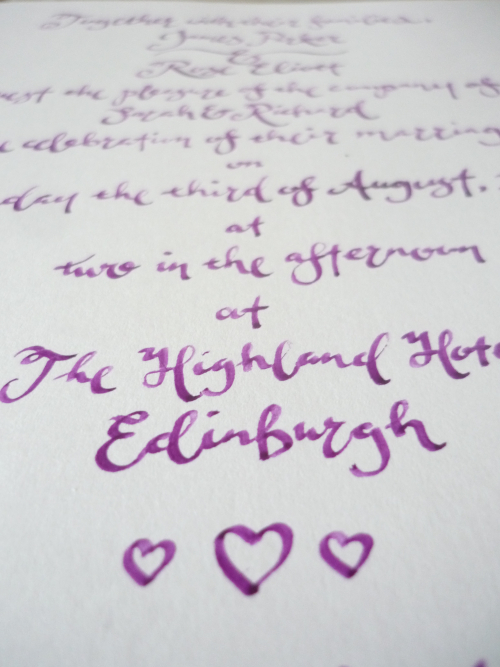 Together with their families,
James Parker
&
Rose Elliott
uest the pleasure of the company of
Sarah & Richard
e celebration of their marriag
on
day the third of August,
at
two in the afternoon
at
The Highland Hote
Edinburgh